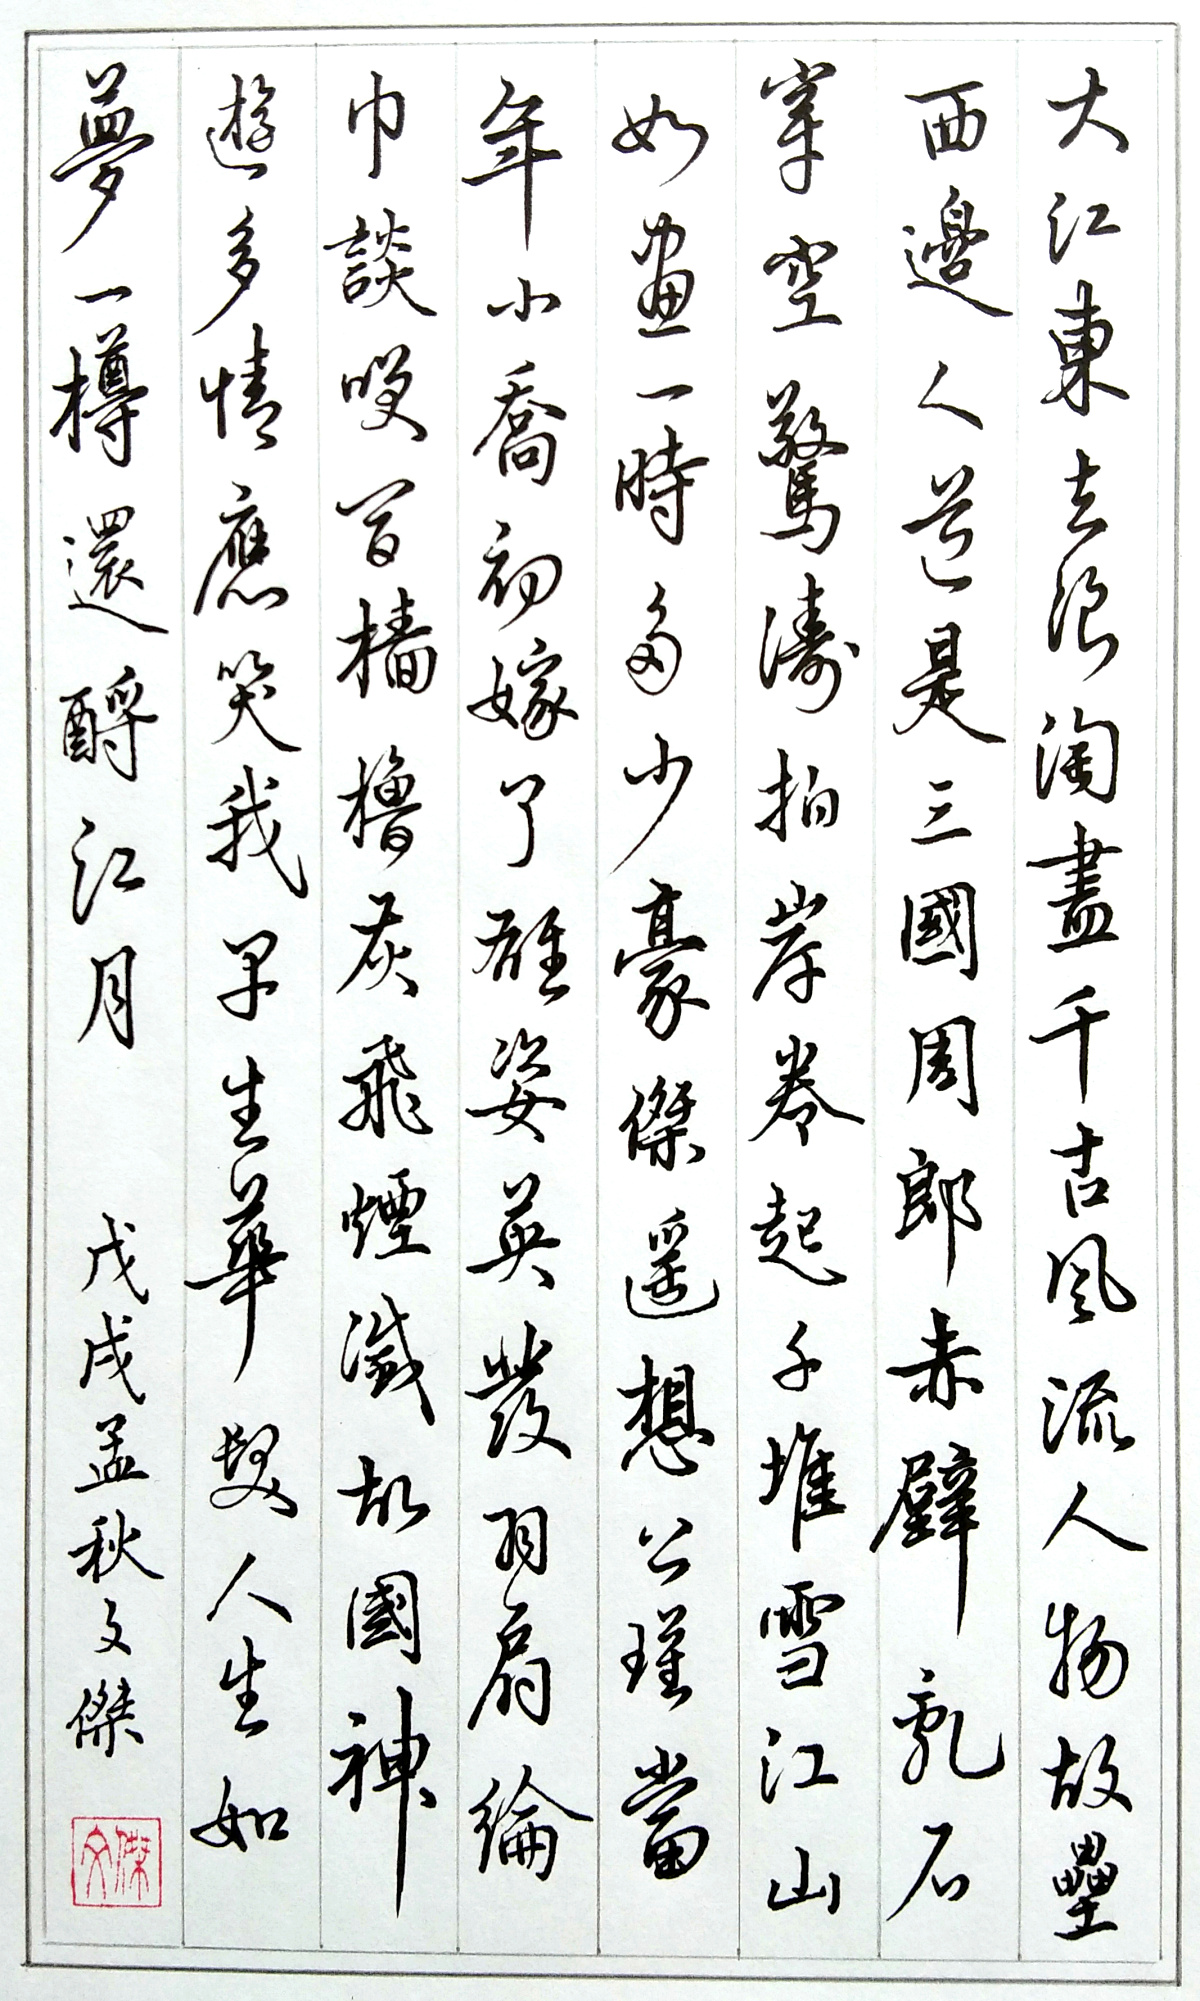 大江東去浪淘盡千古風流人物故壘
西邊人道是三國周郎赤壁亂石
穿空驚濤拍岸卷起千堆雪江山
如畫一時多少豪傑遙想公瑾當
年小喬初嫁了雄姿英發羽扇綸
巾談笑間檣櫓灰飛煙滅故國神
遊多情應笑我早生華髮人生如
夢一樽還酹江月
戊戌孟秋文傑
文傑